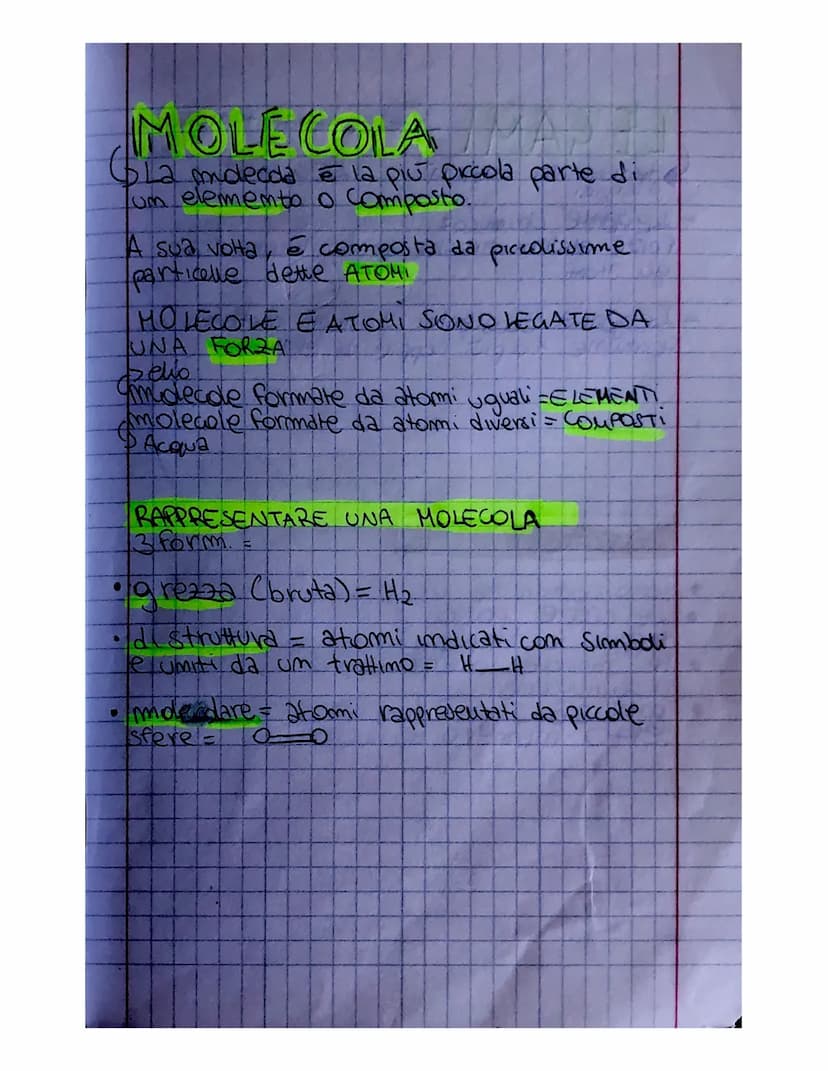 MOLECOLA
La molecola è la più piccola parte di
un elemento o composto.
A sua volta, è composta da piccolissime
particelle dette ATOMI
MOLECOLE E ATOMI SONO LEGATE DA
UNA FORZA
elio
molecole formate da atomi uguali = ELEMENTI
molecole formate da atomi diversi = COMPOSTI
Acqua
RAPPRESENTARE UNA MOLECOLA
3 form. =
• grezza (bruta) = H2
• di struttura = atomi indicati con simboli
e uniti da un trattino = H—H
• molecolare = atomi rappresentati da piccole
sfere =